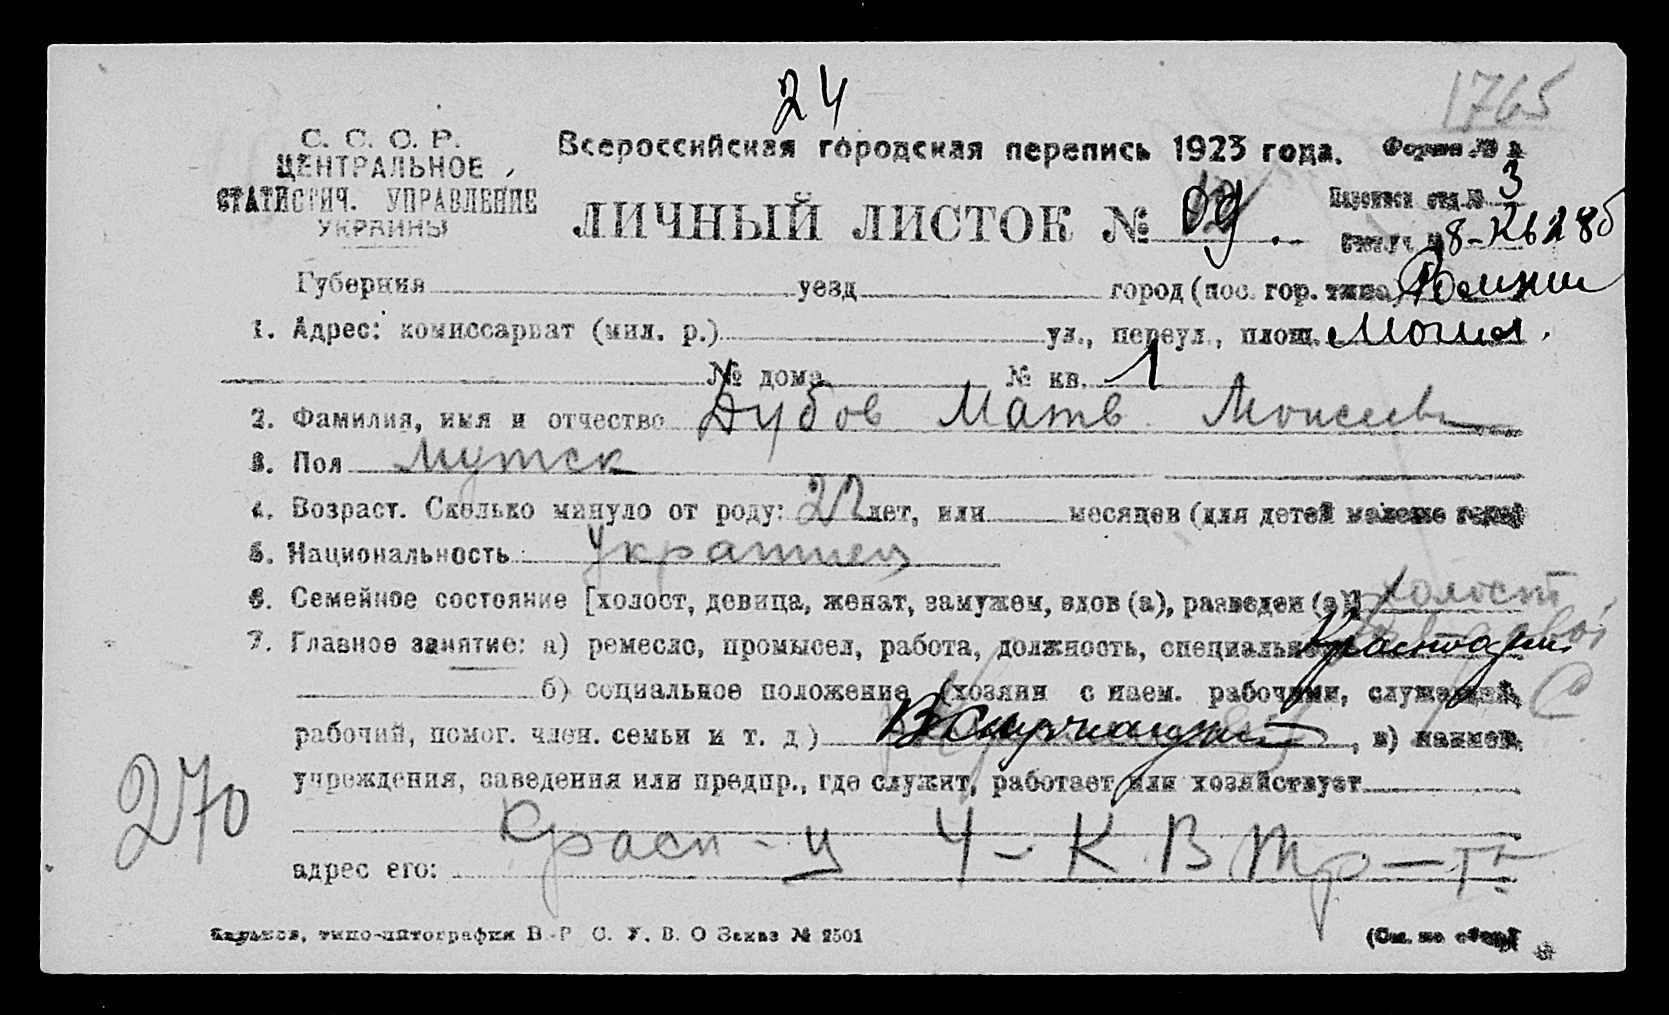 24
1765
С. С. С. Р.
ЦЕНТРАЛЬНОЕ
СТАТИСТИЧ. УПРАВЛЕНИЕ
УКРАИНЫ
Всероссийская городская перепись 1923 года. Форма №
ЛИЧНЫЙ ЛИСТОК №
Переписн. отд. № 3
Губерния уезд город (пос. гор. типа)
1. Адрес: комиссариат (мил. р.) ул., переул., площ.
№ дома № кв. 1
2. Фамилия, имя и отчество Дубов Матв Моисеев
3. Пол Мужск
4. Возраст. Сколько минуло от роду: 22 лет, или месяцев (для детей моложе года)
5. Национальность Украинец
6. Семейное состояние [холост, девица, женат, замужем, вдов (а), разведен (а)] холост
7. Главное занятие: а) ремесло, промысел, работа, должность, специальность Красноарм.
б) социальное положение (хозяин с наем. рабочими, служащий, С
рабочий, помог. член. семьи и т. д.) , в) наимен.
учреждения, заведения или предпр., где служит, работает или хозяйствует
Красн-ц 4-К В Тр-т
адрес его:
270
Харьков, типо-литография В. Р. С. У. В. О Заказ № 2501
(См. на обор.)